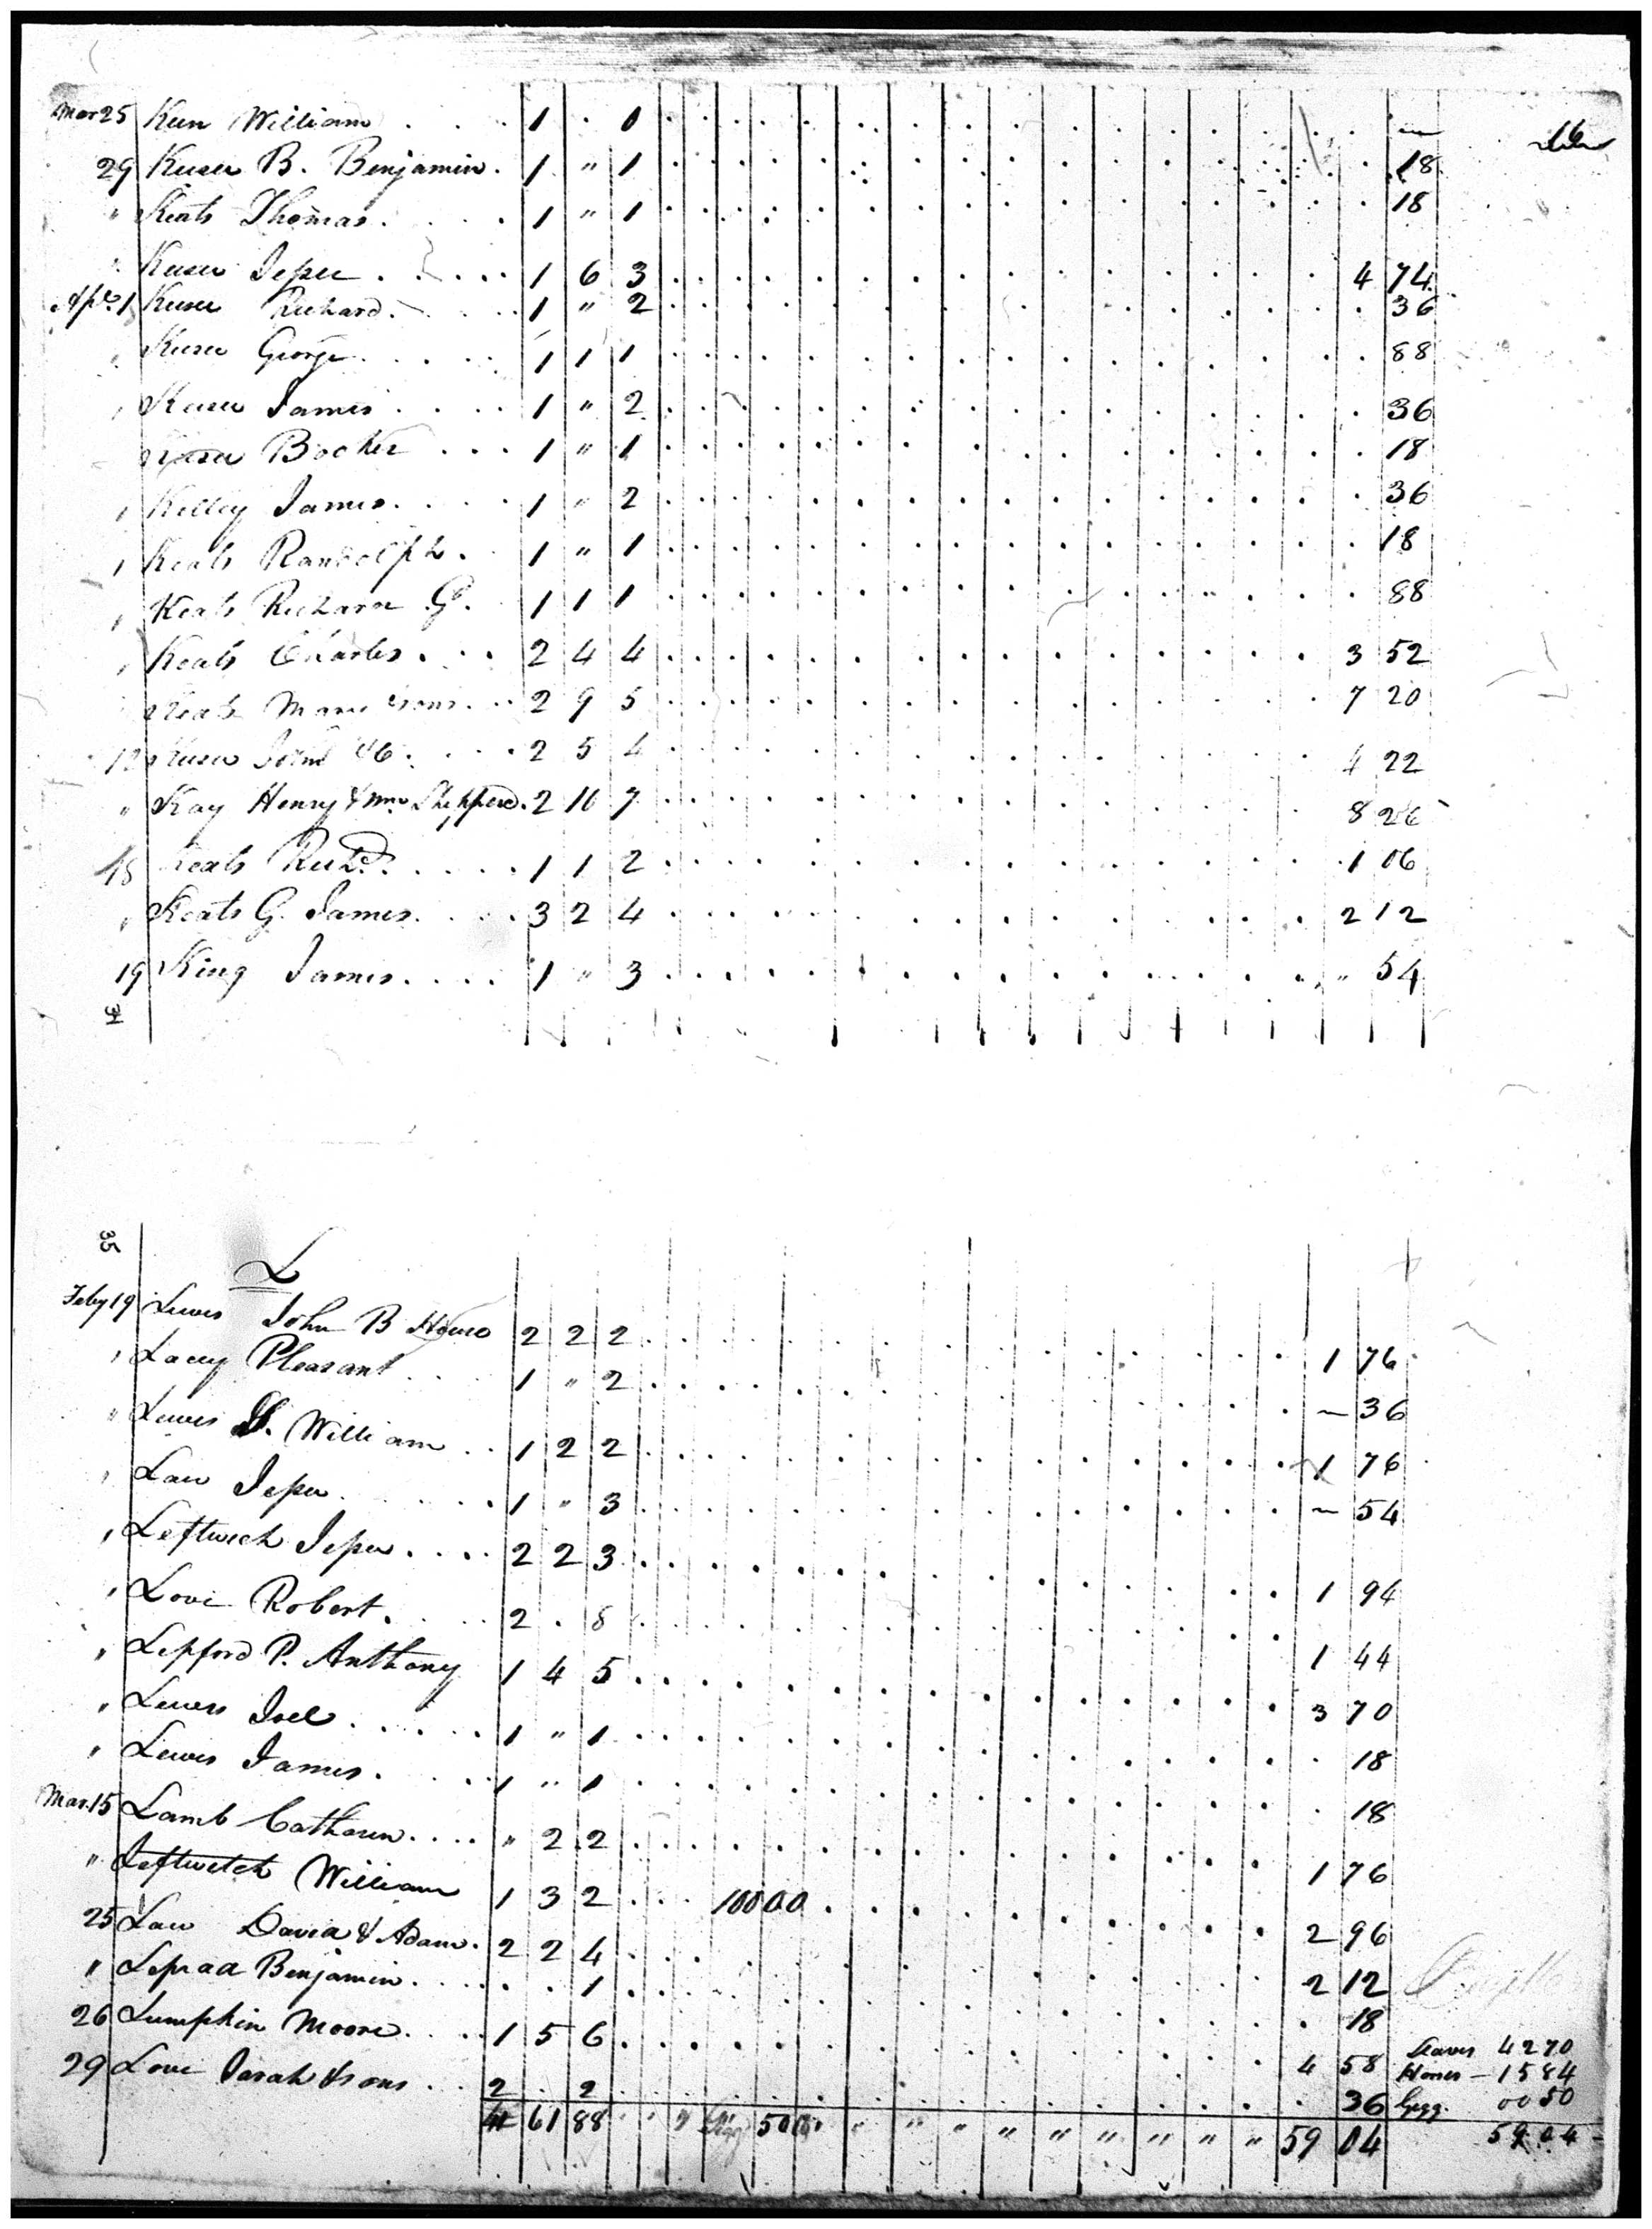 16
Mar 25 Keen William 1 . 0 —
29 Keser B. Benjamin 1 " 1 18
" Keats Thomas 1 " 1 18
" Jesse 1 6 3 4 74
Apl. 1 Richard 1 " 2 36
" George 1 1 1 88
" James 1 " 2 36
Booker 1 " 1 18
" Kelley James 1 " 2 36
" Keats Randolph 1 " 1 18
" Keats Richard G. 1 1 1 88
" Keats Charles 2 4 4 3 52
Keats & sons 2 9 5 7 20
12 John 2 5 4 4 22
" Kay Henry & Wm. Shepperd 2 10 7 8 26
18 Keats Richd. 1 1 2 1 06
" Keats G. James 3 2 4 2 12
19 King James 1 " 3 " 54
34
35
L
Feby 19 Lewis John B 2 2 2 1 76
" Lacey Pleasant 1 " 2 — 36
" Lewis William 1 2 2 1 76
" Law Jesse 1 " 3 — 54
" Leftwich Jesse 2 2 3 1 94
" Love Robert 2 . 8 1 44
" P. Anthony 1 4 5 3 70
" Lewis Joel 1 " 1 18
" Lewis James 1 " 1 18
Mar. 15 Lamb Catharin " 2 2 1 76
" Leftwitch William 1 3 2 100 00 2 96
25 Law David & Adam 2 2 4 2 12
" Benjamin . . 1 18
26 Lumpkin Moore 1 5 6 4 58 Slaves 42 70
29 Love Sarah & sons 2 . 2 36 Horses — 15 84
Gigg. 00 50
41 61 88 " " " Gigg 50 " " " " " " " " " 59 04 59 04